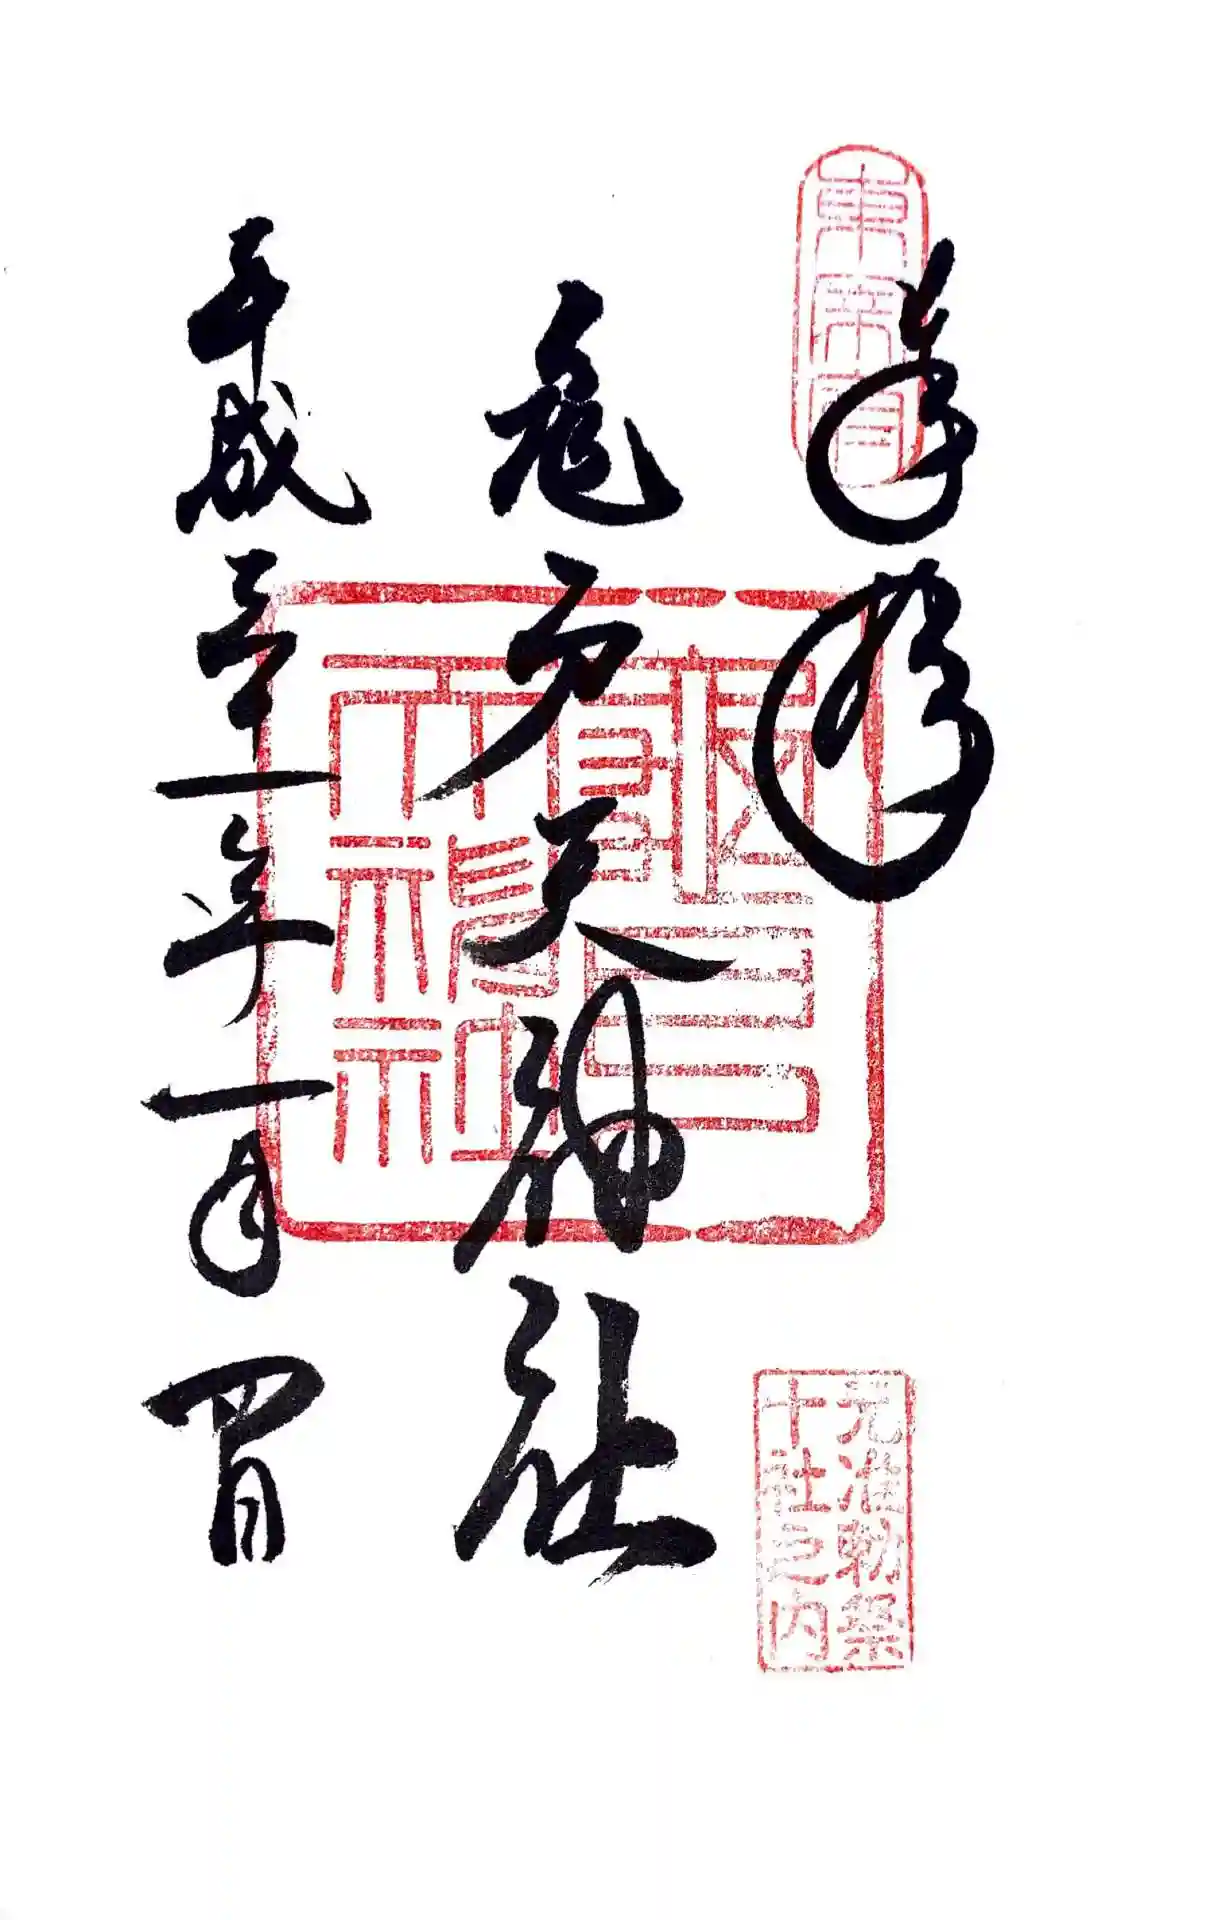 東宰府
奉拝
元准勅祭
十社之内
亀戸天神社
龜戸
天神社
平成三十一年一月四日